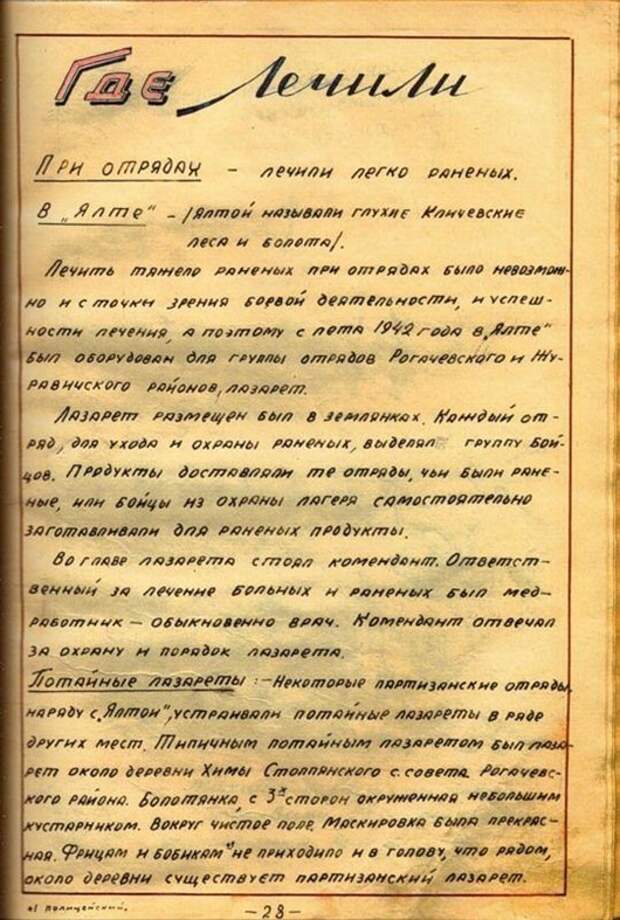 Где Лечили
При отрядах – лечили легко раненых.
В „Ялте" – /Ялтой называли глухие Кличевские
леса и болота/.
Лечить тяжело раненых при отрядах было невозмож-
но и с точки зрения боевой деятельности, и успеш-
ности лечения, а поэтому с лета 1942 года в „Ялте"
был оборудован для группы отрядов Рогачевского и Жу-
равичского районов, лазарет.
Лазарет размещен был в землянках. Каждый от-
ряд, для ухода и охраны раненых, выделял группу бой-
цов. Продукты доставляли те отряды, чьи были ране-
ные, или бойцы из охраны лагеря самостоятельно
заготавливали для раненых продукты.
Во главе лазарета стоял комендант. Ответст-
венный за лечение больных и раненых был мед-
работник – обыкновенно врач. Комендант отвечал
за охрану и порядок лазарета.
Потайные лазареты: – Некоторые партизанские отряды,
наряду с „Ялтой", устраивали потайные лазареты в ряде
других мест. Типичным потайным лазаретом был лаза-
рет около деревни Химы Столпянского с. совета. Рогачевс-
кого района. Болотянка, с 3х сторон окруженная небольшим
кустарником. Вокруг чистое поле. Маскировка была прекрас-
ная. Фрицам и бобикам*/ не приходило и в голову, что рядом,
около деревни существует партизанский лазарет.
*/ полицейский.
– 28 –